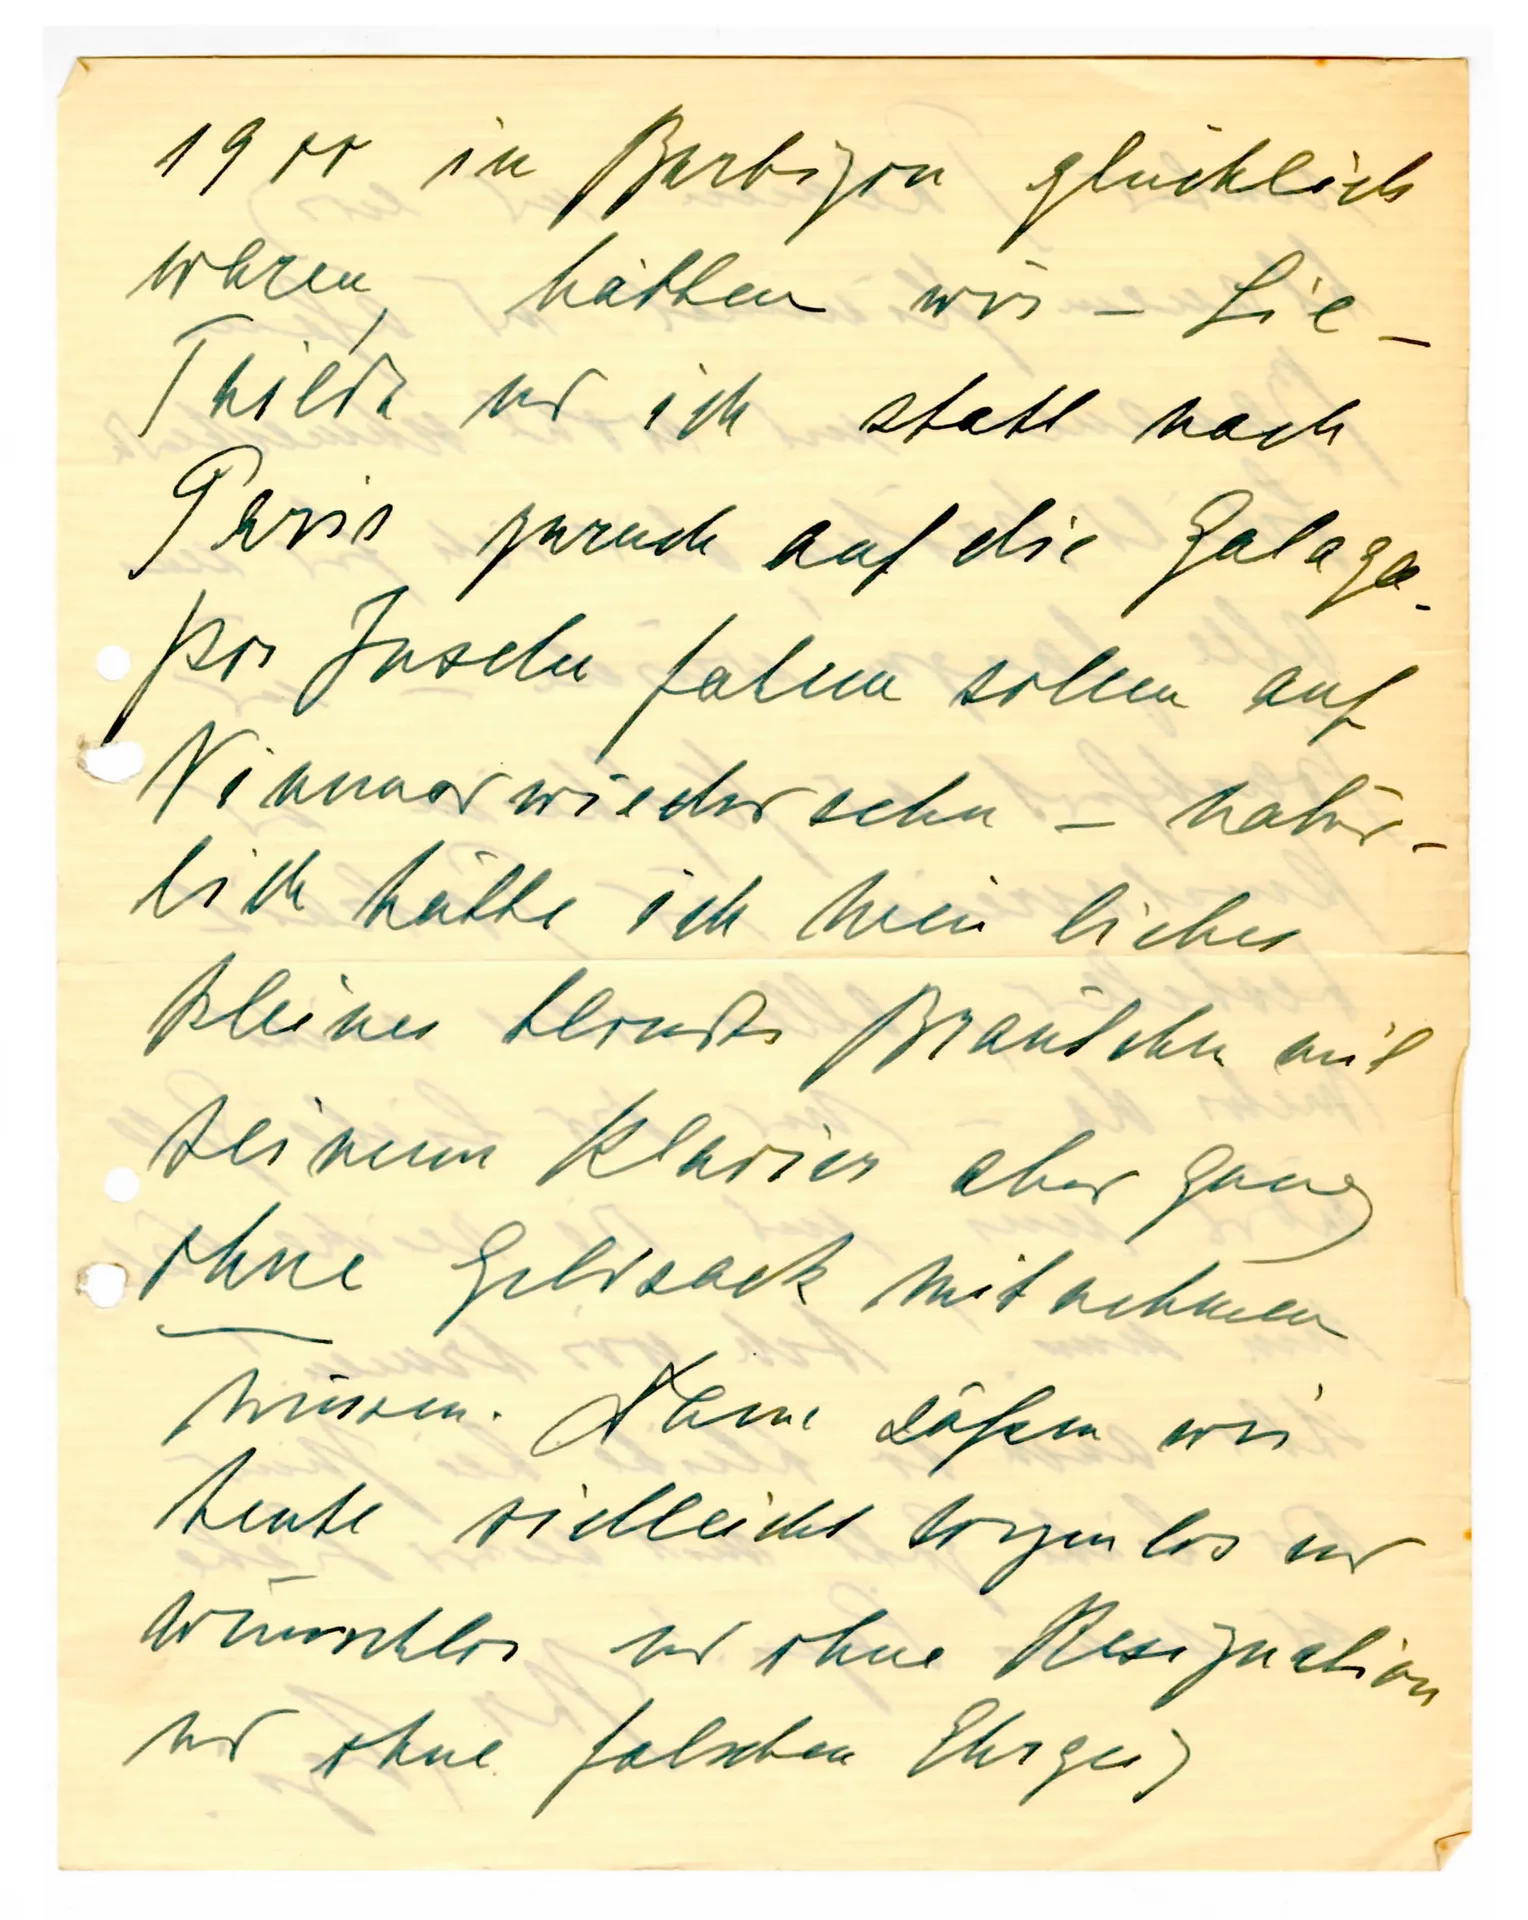 1900 in Barbizon glücklich
waren, hätten wir – Sie –
Thilda und ich statt nach
Paris zurück auf die Galaga-
pos Inseln fahren sollen auf
Nimmerwiedersehn – natür-
lich hätte ich mein liebes
kleines blondes Bräutchen mit
seinem Klavier aber ganz
ohne Geldsack mitnehmen
müssen. Dann säßen wir
heute vielleicht sorgenlos und
wunschlos und ohne Resignation
und ohne falschen Ehrgeiz